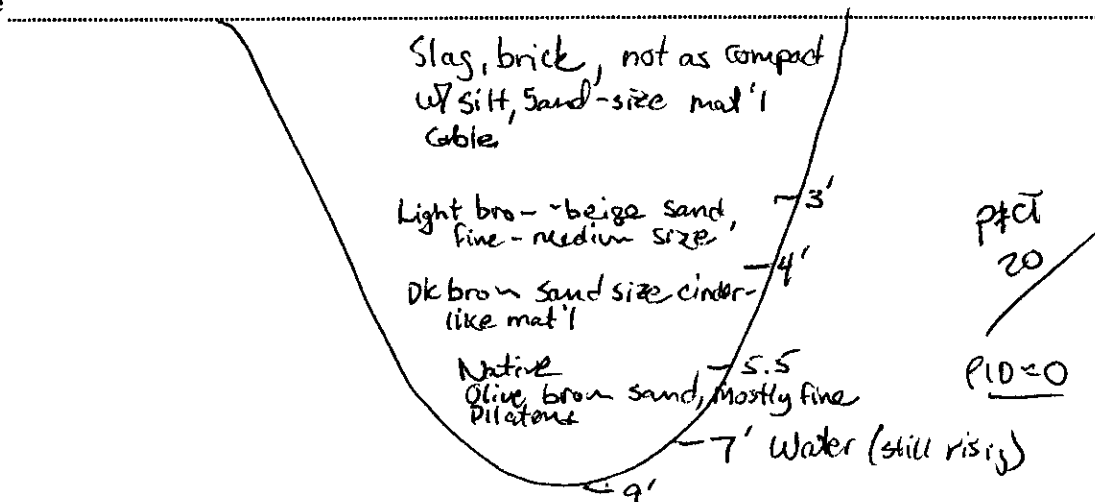 Slag, brick, not as compact
w/ silt, sand-size mat'l
Cable
3'
Light bro- -beige sand,
fine-medium size
4'
Dk brown sand size cinder-
like mat'l
Native
5.5
Olive brown sand, mostly fine
7' Water (still risig)
9'
20
PID=0